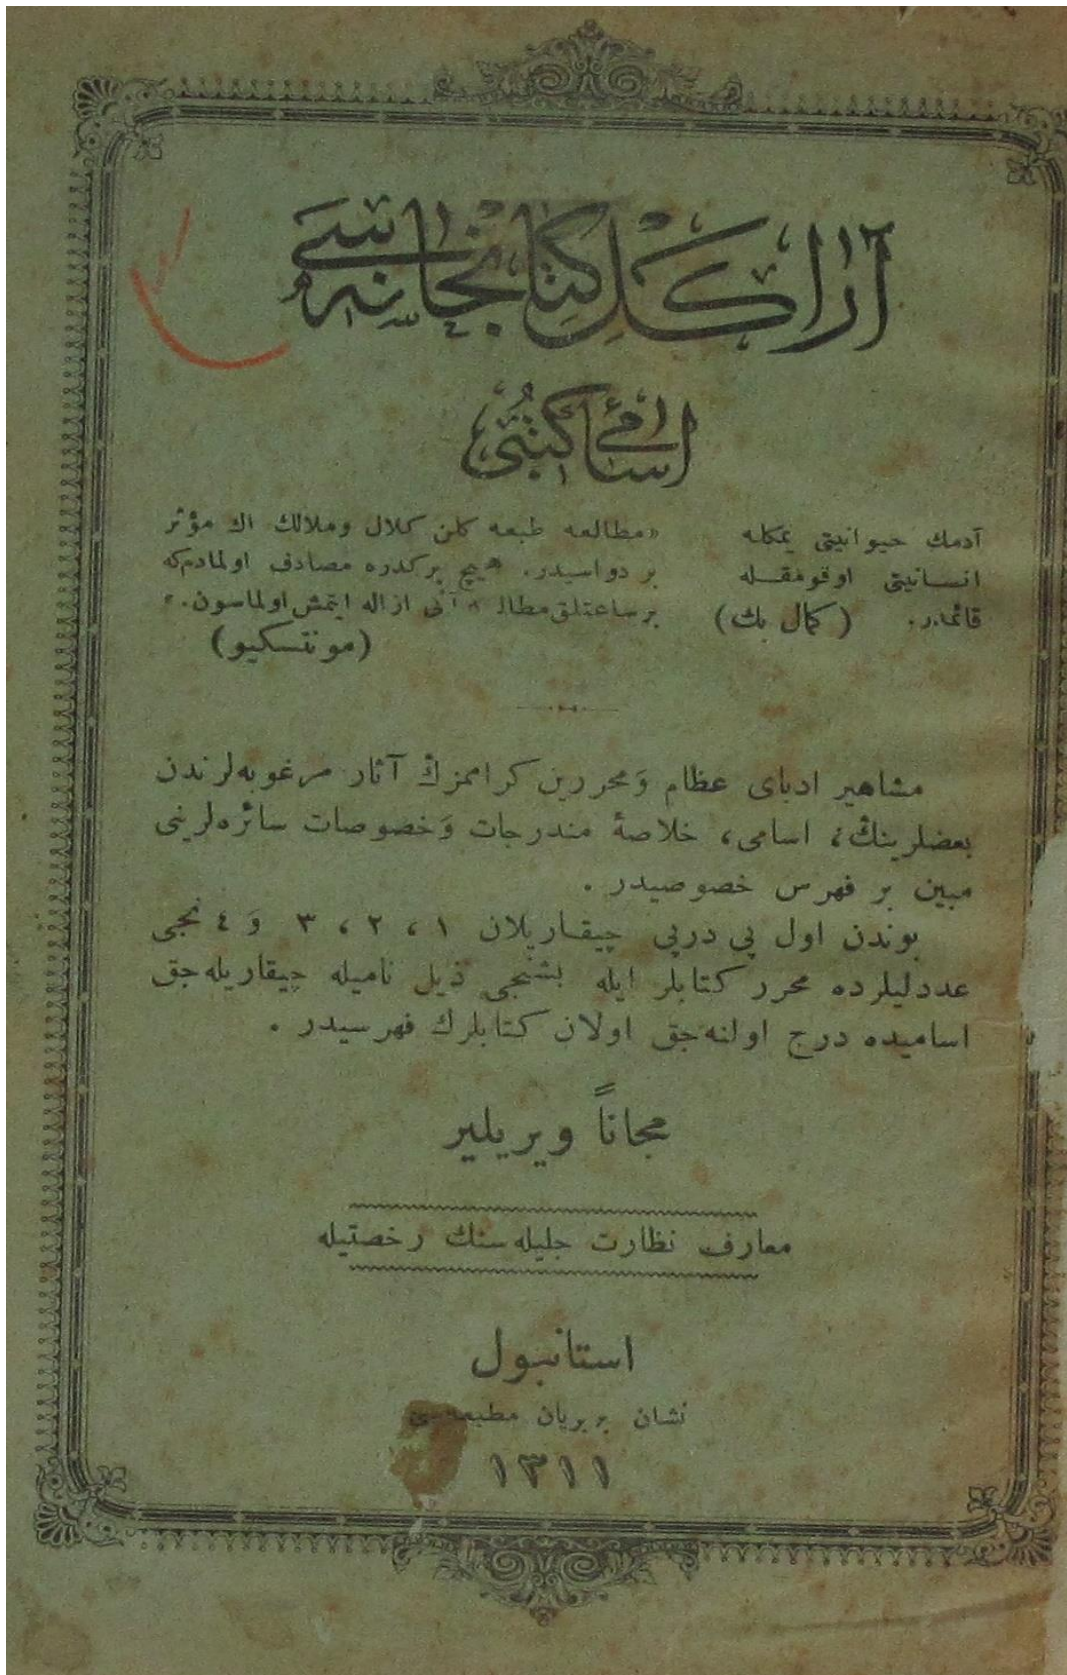 آراكل كتابخانه سى
اسامئ كتبى
آدمك حيوانيتى يمكله
انسانيتى اوقومقله
قائمدر. (كمال بك)
«مطالعه طبعه كلن كلال وملالك اك مؤثر
بر دواسيدر. هيچ بر كدره مصادف اولمادم كه
بر ساعتلق مطالعه آنى ازاله ايتمش اولماسون.»
(مونتسكيو)
مشاهير ادباى عظام وَ محررين كراممزڭ آثار مرغوبه لرندن
بعضلرينڭ، اسامى، خلاصهٔ مندرجات وَ خصوصات سائره لرينى
مبين بر فهرس خصوصيدر.
بوندن اول پى درپى چيقاريلان ١، ٢، ٣ وَ ٤ نجى
عددليلرده محرر كتابلر ايله بشنجى ذيل ناميله چيقاريله جق
اساميده درج اولنه جق اولان كتابلرڭ فهرسيدر.
مجاناً ويريلير
معارف نظارت جليله سنك رخصتيله
استانبول
نشان بربريان مطبعه سى
١٣١١